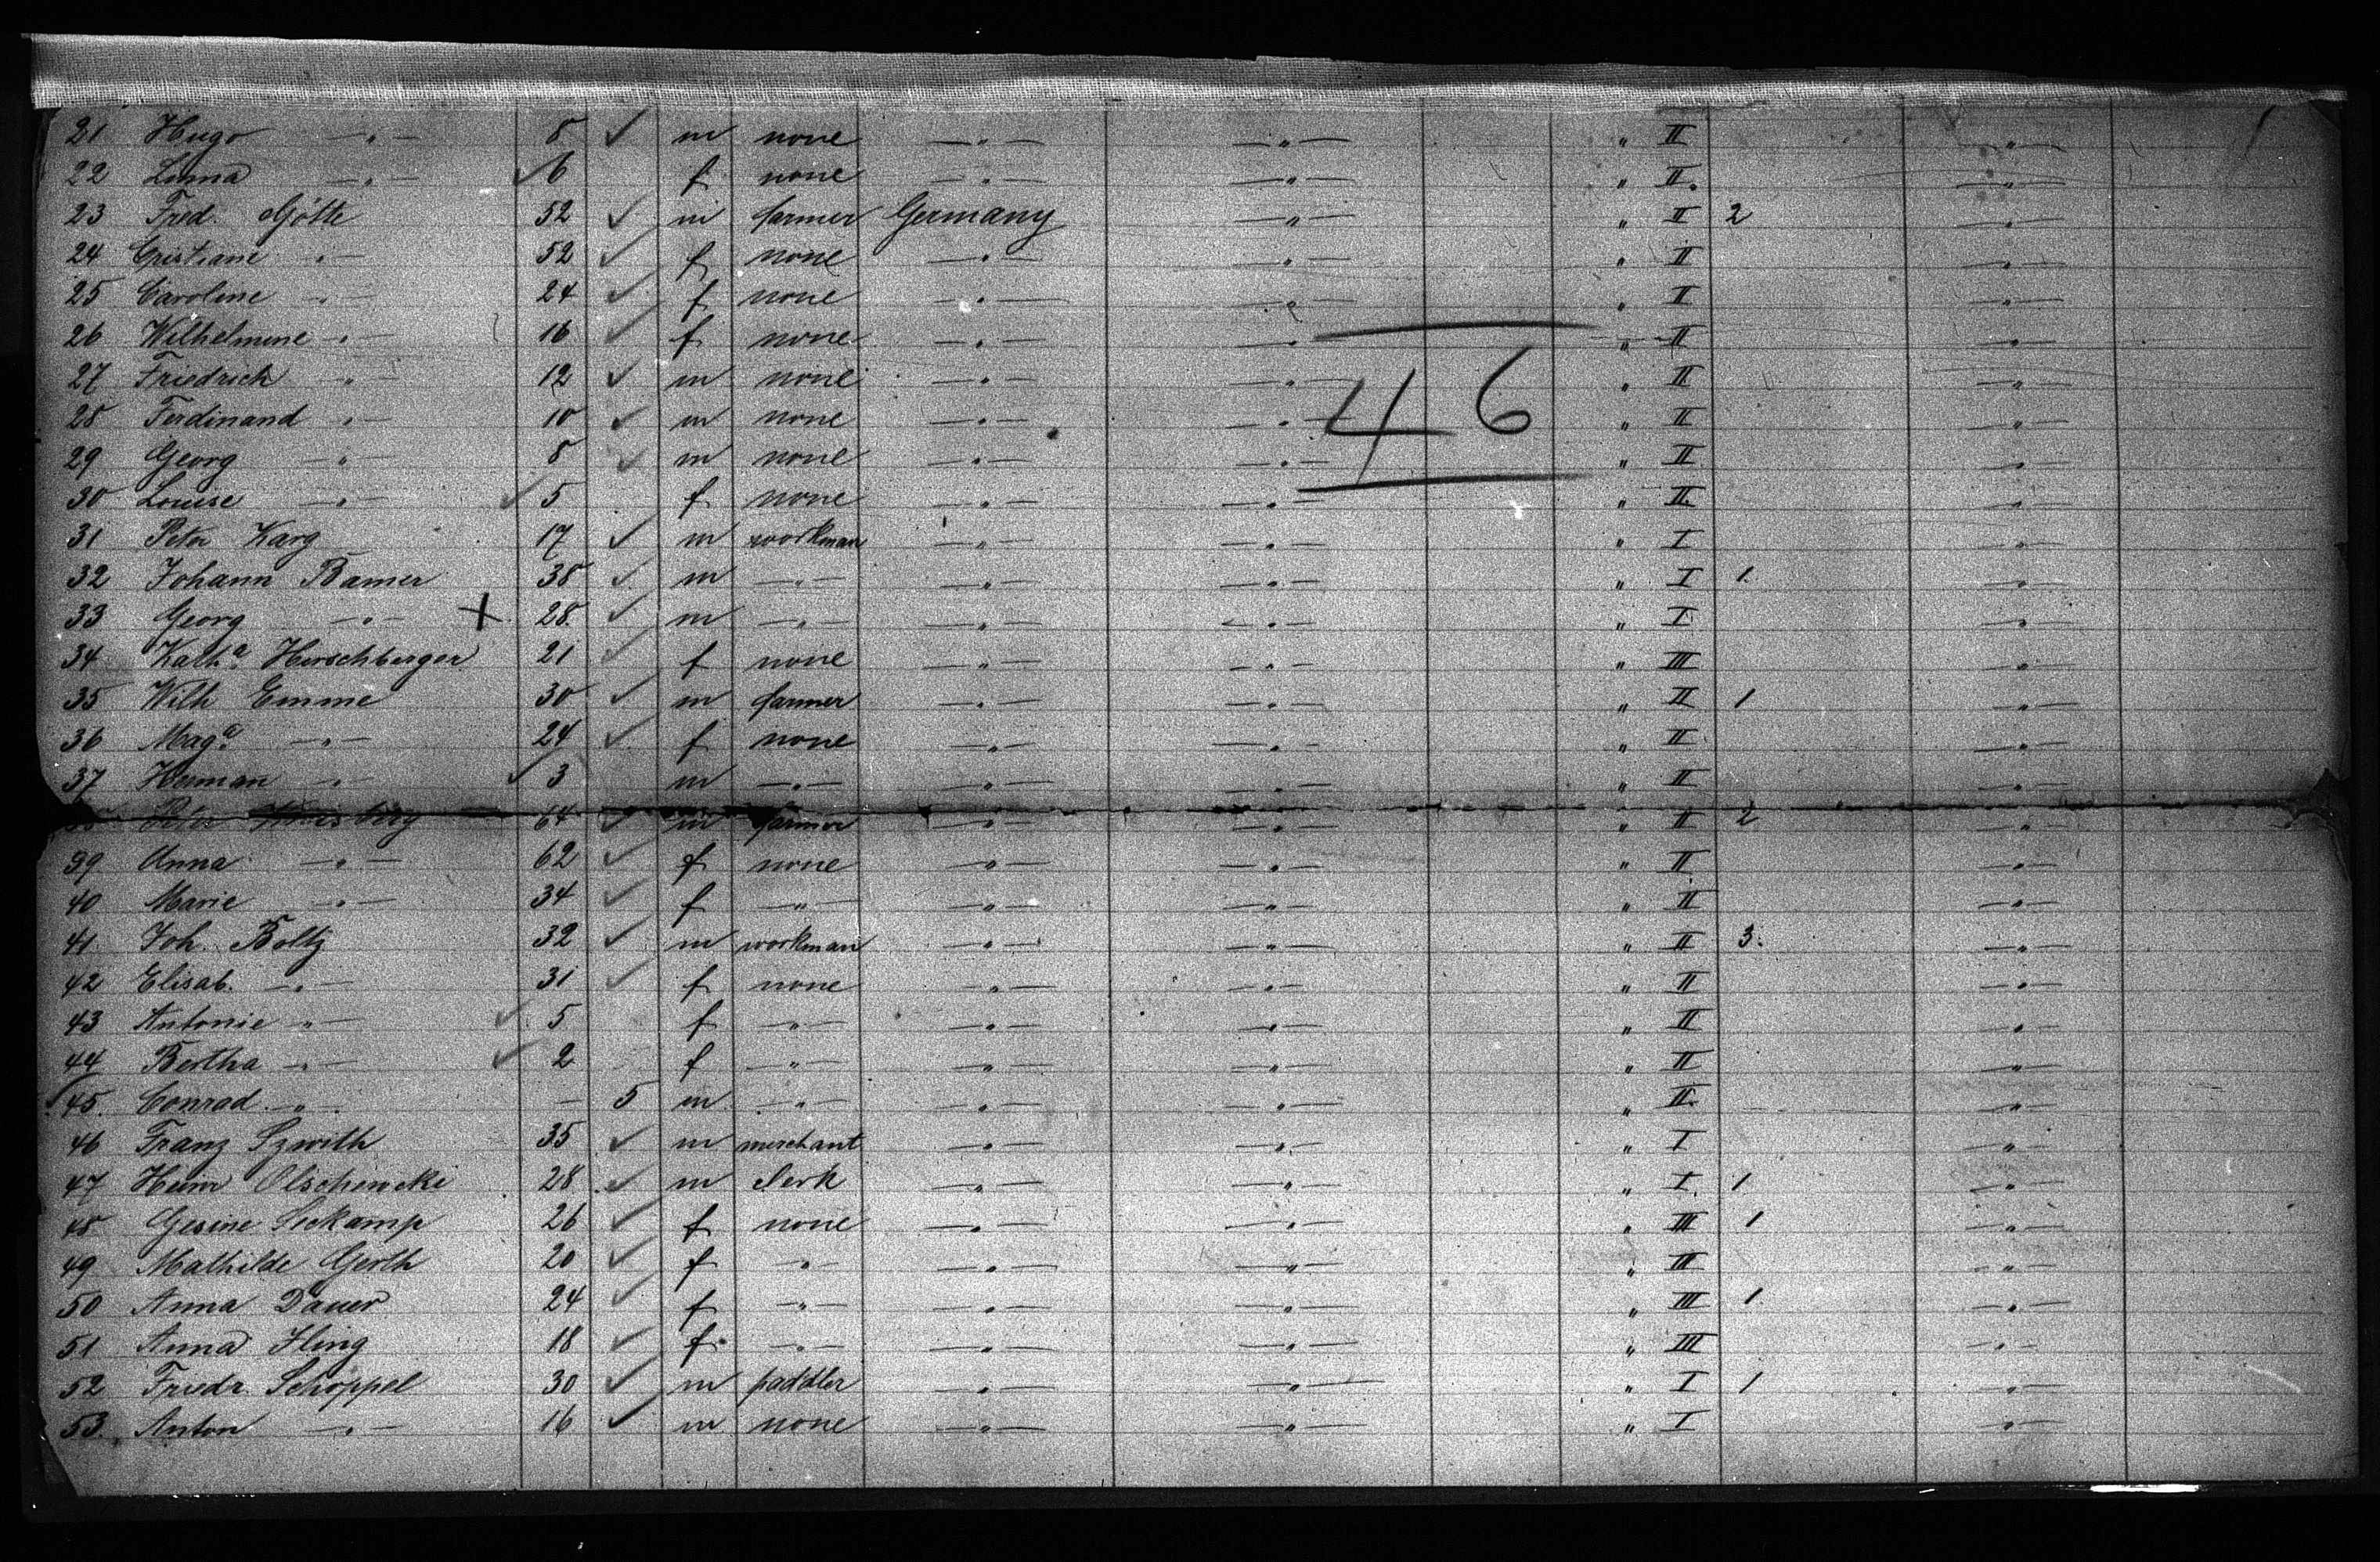 21 Hugo —"— 8 ✓ m none —"— —"— " II —"—
22 Linna —"— ✓ 6 f none —"— —"— " II. —"—
23 Fred. Götte 52 ✓ m farmer Germany —"— " II 2 —"—
24 Cristiane —"— 52 ✓ f none —"— —"— " II —"—
25 Caroline —"— 24 ✓ f none —"— —"— " II —"—
26 Wilhelmine —"— 16 ✓ f none —"— —"— " II —"—
27 Friedrich —"— 12 ✓ m none —"— —"— " II —"—
46
28 Ferdinand —"— 10 ✓ m none —"— —"— " II —"—
29 Georg —"— 8 ✓ m none —"— —"— " II —"—
30 Louise —"— ✓ 5 f none —"— —"— " II —"—
31 Peter Karg 17 ✓ m workman —"— —"— " I —"—
32 Johann Bamer 38 ✓ m —"— —"— —"— " I 1. —"—
33 Georg —"— X 28. ✓ m —"— —"— —"— " I —"—
34 Kath.a Herschberger 21 ✓ f none —"— —"— " III —"—
35 Wilh Emme 30 ✓ m farmer —"— —"— " II 1 —"—
36 Mag.a —"— 24 ✓ f none —"— —"— " II —"—
37 Herman —"— ✓ 3 m —"— —"— —"— " II —"—
Peter 64 ✓ m farmer —"— —"— " II 2 —"—
39 Anna —"— 62 ✓ f none —"— —"— " II —"—
40 Marie —"— 34 ✓ f —"— —"— —"— " II —"—
41 Joh. Boltz 32 ✓ m workman —"— —"— " II 3. —"—
42 Elisab. —"— 31 ✓ f none —"— —"— " II —"—
43 Antonie —"— ✓ 5 f —"— —"— —"— " II —"—
44 Bertha —"— ✓ 2 f —"— —"— —"— " II —"—
✓ 45. Conrad —"— — 5 m —"— —"— —"— " II. —"—
46 Franz Szwith 35 ✓ m merchant —"— —"— " I —"—
47 Heinr Olschewcki 28 ✓ m clerk —"— —"— " I. 1 —"—
48 Gesine Seekamp 26 ✓ f none —"— —"— " III 1 —"—
49 Mathilde Gerth 20 ✓ f —"— —"— —"— " III —"—
50 Anna Dauer 24 ✓ f —"— —"— —"— " III 1. —"—
51 Anna Iling 18 ✓ f —"— —"— —"— " III —"—
52 Friedr. Schöppel 30 ✓ m paddler —"— —"— " I 1 —"—
53. Anton —"— 16 ✓ m none —"— —"— " I —"—